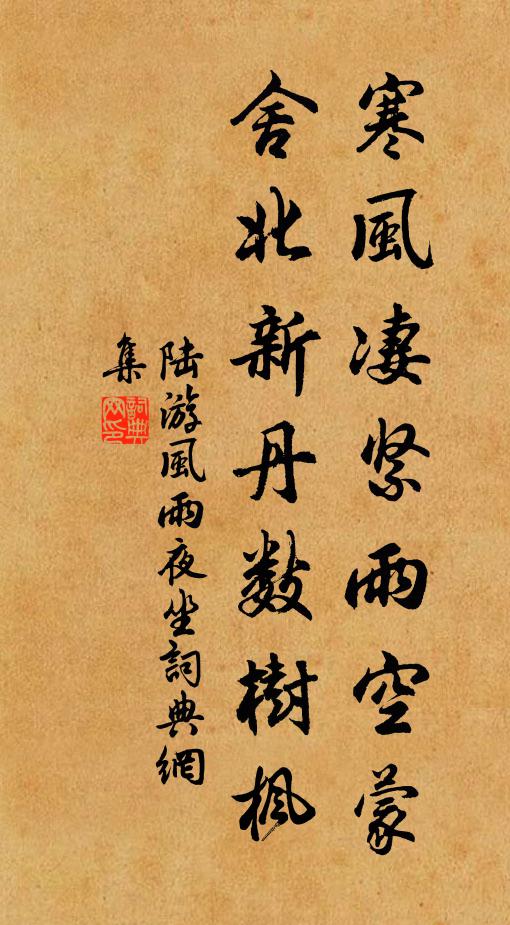 寒風凄緊雨空蒙
舍北新丹數樹楓
陸游風雨夜坐詞典網
集
詞典網印